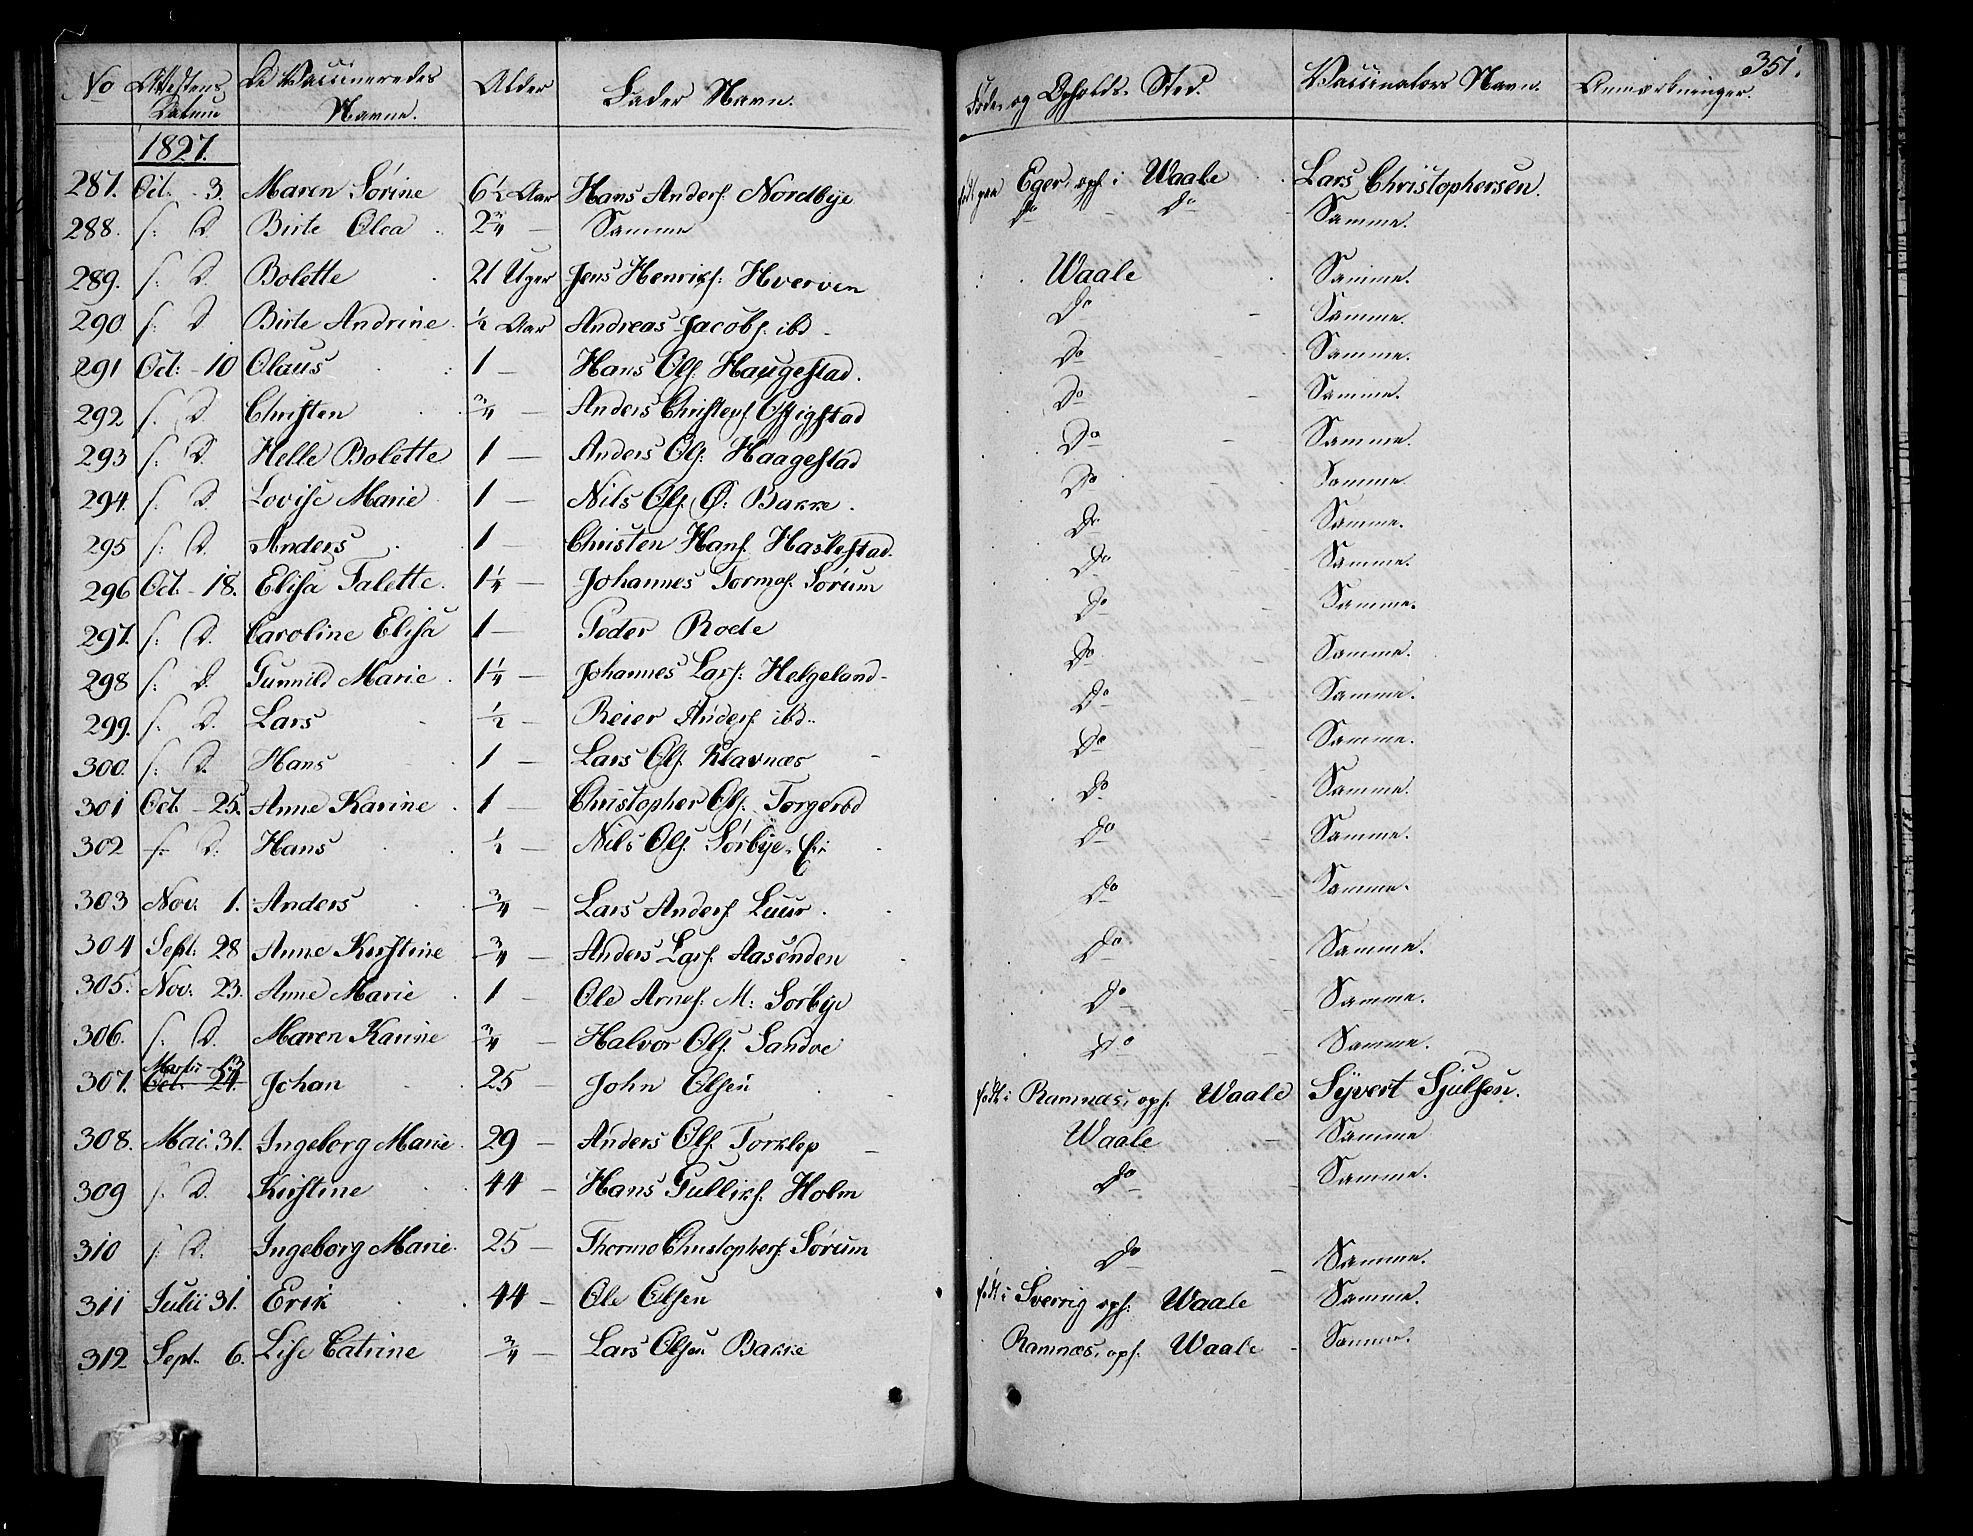 351.
No Attestens Datum | De Vaccineredes Navne. | Alder | Fader Navn. | Føde- og Opholds- Sted. | Vaccinators Navn. | Anmærkninger.
1827.
287. Oct. - 3. Maren Sørine 6½ Aar Hans Anders: Nordbye født paa Eger, oph: i Waale Lars Christophersen.
288. s: D. Birte Olea 2¾ — Samme Do - Do Samme.
289. s: D. Bolette 21 Uger Jens Henriks: Hverven Waale Samme.
290 s: D Birte Andrine ½ Aar Andreas Jacobs: ibd - Do Samme.
291 Oct: - 10 Olaus 1 — Hans Ols: Haugestad. Do Samme.
292 s: D. Christen ¾ — Anders Do Samme.
293 s: D. Helle Bolette 1 — Anders Ols: Haagestad Do Samme.
294. s: D. Lovise Marie 1 — Nils Ols: Ø: Bakke. Do Samme.
295 s: D. Anders 1 — Christen Hans: Haslestad. Do Samme.
296 Oct. - 18. Elisa Talette. 1¼ — Johannes Tormos: Sørum Do Samme.
297. s: D. Caroline Elisa 1 — Peder Roele Do Samme.
298 s: D. Gunnild Marie. 1¼ — Johannes Lars: Helgeland - Do Samme.
299. s: D. Lars ½ — Reier Anders: ibd.. Do Samme.
300. s: D. Hans 1 — Lars Ols: Klavnæs Do Samme.
301 Oct. - 25. Anne Karine 1 — Christopher Ols: Torgerød Do Samme.
302 s: D: Hans ½ — Nils Ols: Sørbye- Do Samme.
303 Nov. 1. Anders ¾ — Lars Anders: Luur. Do Samme.
304 Sept: 28 Anne Kirstine ¾ — Anders Lars: Aasenden Do Samme.
305. Nov: 23. Anne Marie 1 — Ole Arnes: M: Sørbye Do Samme.
306. s: D. Maren Karine ¾ — Halvor Ols: Sandoe Do Samme.
307. Oct. 24. Johan 25 — John Olsen født i Ramnæs, oph: Waale Syvert Sjulsen.
308. Mai. 31. Ingeborg Marie. 29 — Anders Ols: Torklep Waale Samme
309 s: D. Kirstine 44 — Hans Gulliks: Holm Do Samme.
310 s: D. Ingeborg Marie. 25 — Thormo Christophers: Sørum Do Samme.
311 Julii 31. Erik 44 — Ole Olsen født i Sverrig oph: Waale Samme.
312 Sept. 6. Lise Catrine ¾ — Lars Olsen Bakke Ramnæs, oph: Waale Samme.